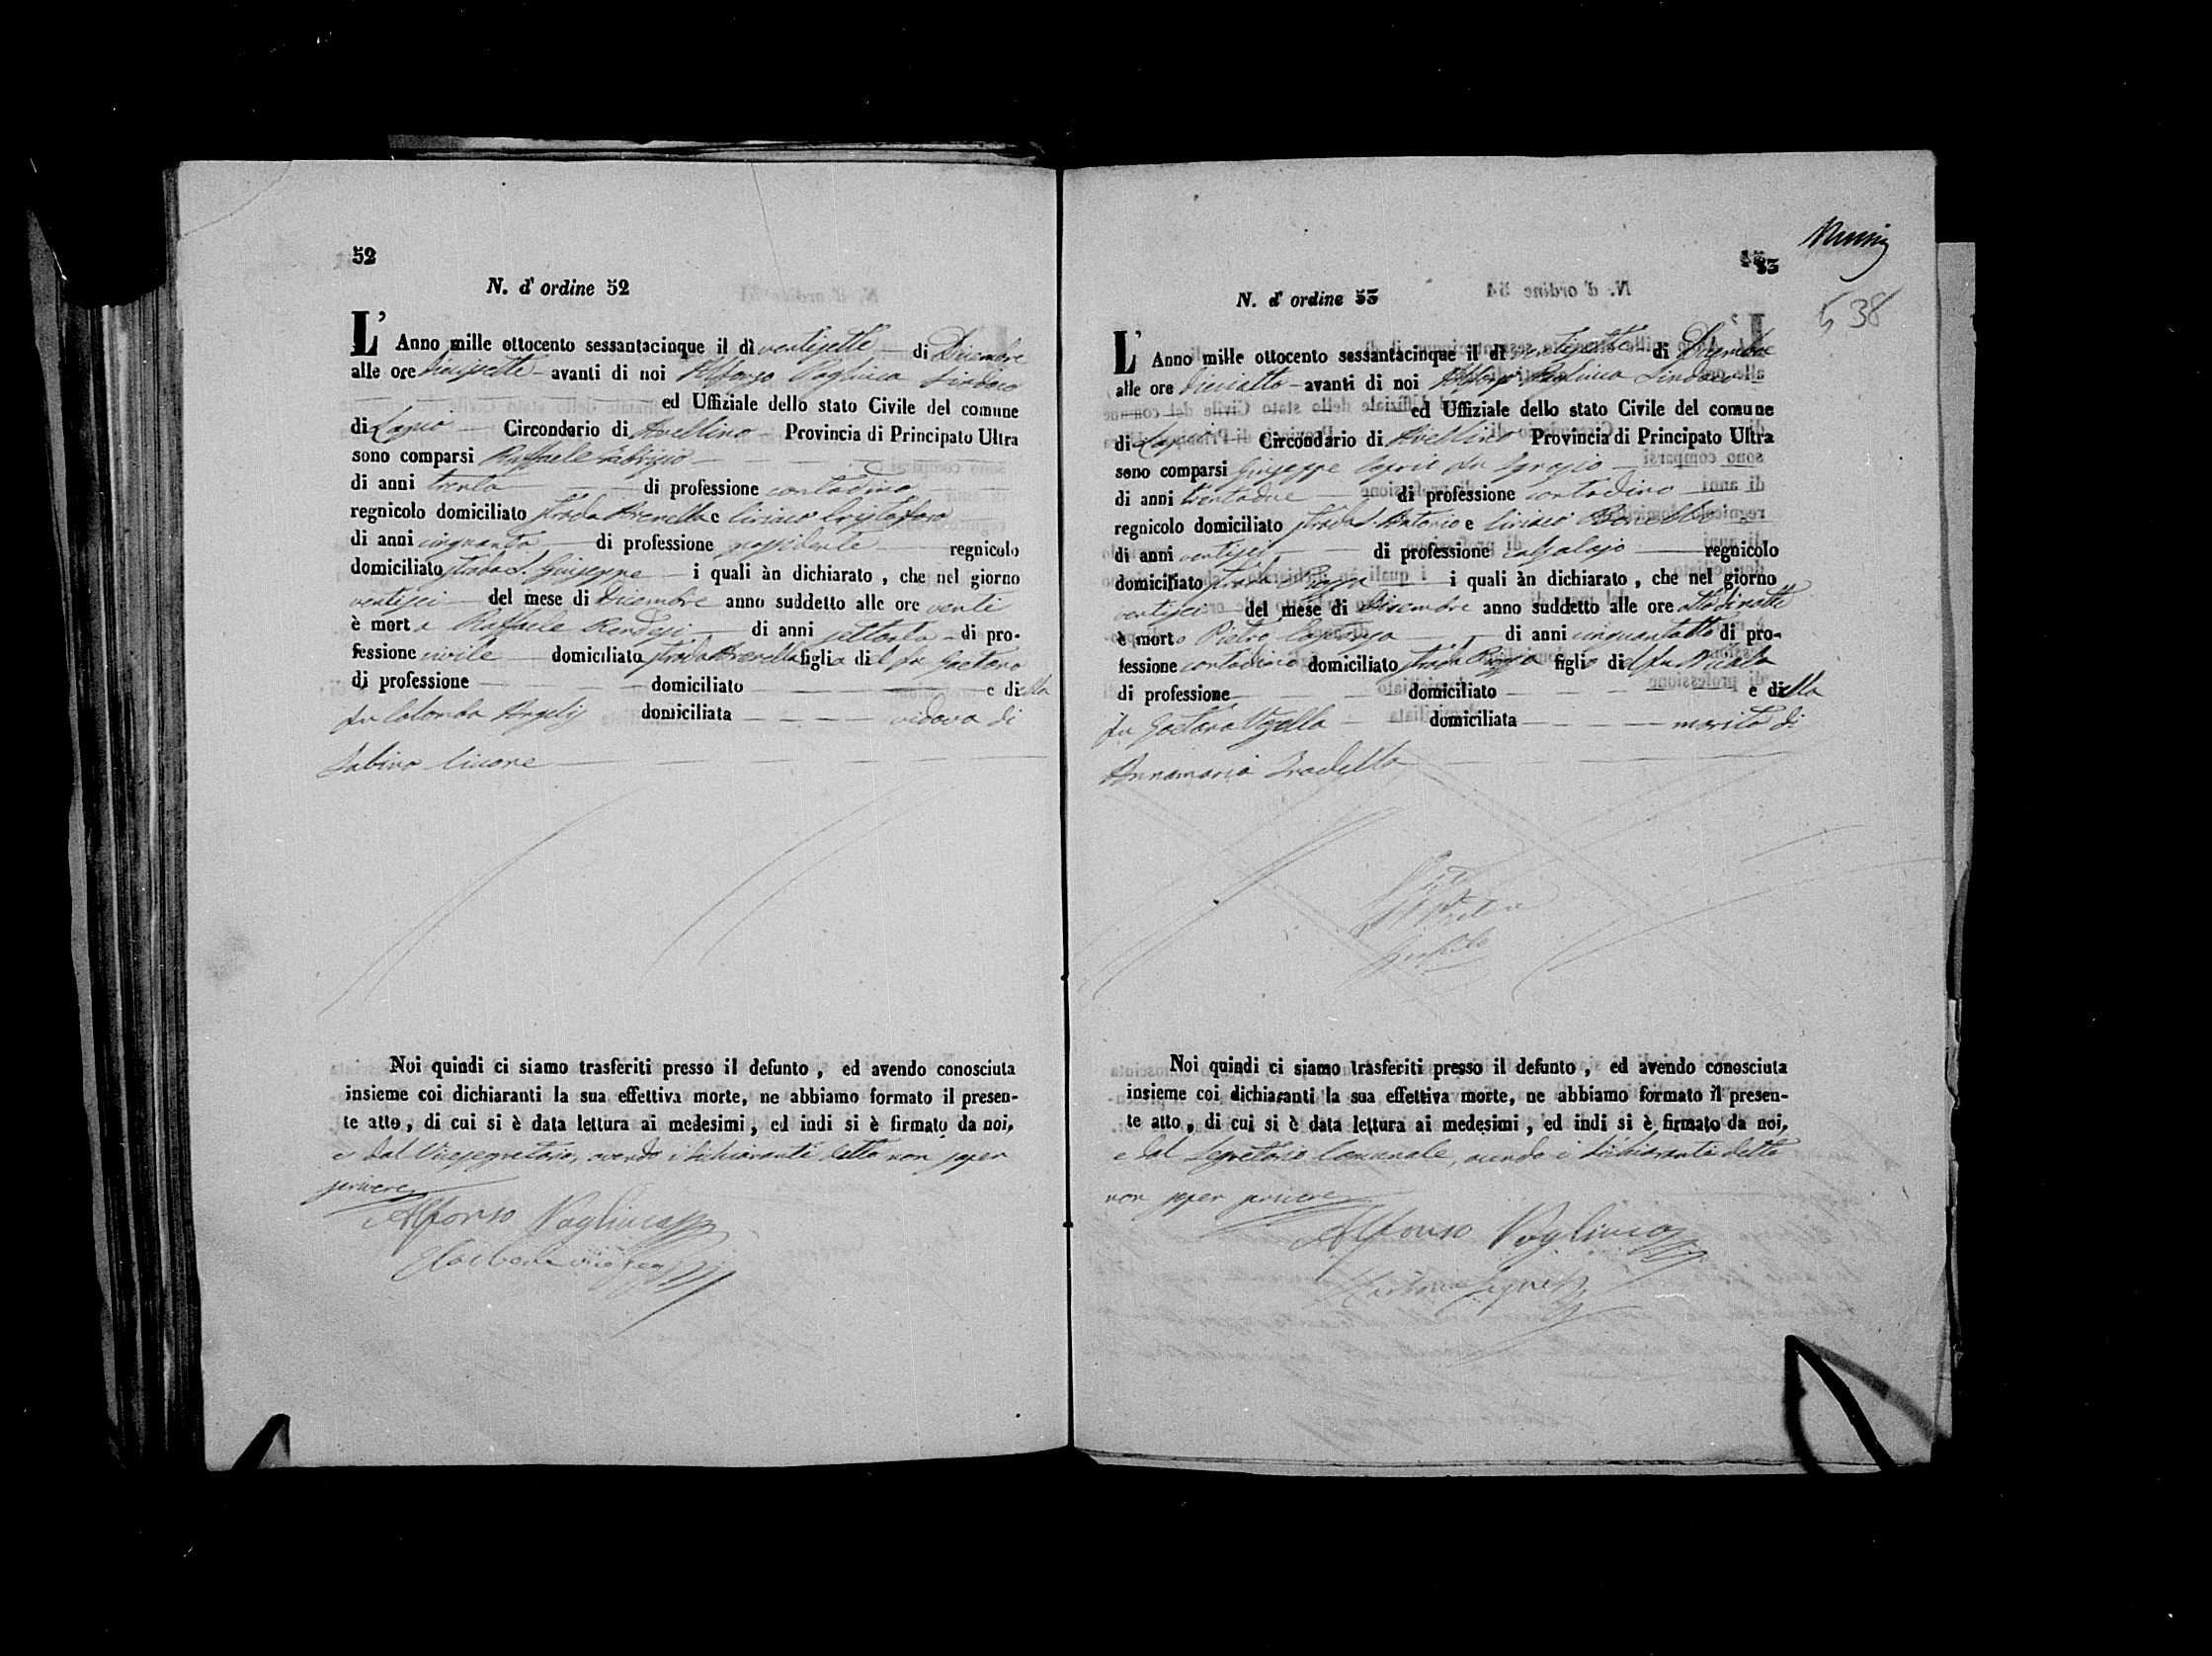 52
N. d' ordine 52
L' Anno mille ottocento sessantacinque il dì ventisette di Dicembre
alle ore diciasette avanti di noi Alfonso Vagliuca Sindaco
ed Uffiziale dello stato Civile del comune
di Lapio Circondario di Avellino Provincia di Principato Ultra
sono comparsi Raffaele Fabrizio
di anni trenta di professione contadino
regnicolo domiciliato strada e Ciriaco Cristofaro
di anni cinquanta di professione possidente regnicolo
domiciliato strada S. Giuseppe i quali àn dichiarato, che nel giorno
ventisei del mese di Dicembre anno suddetto alle ore venti
è morta Raffaele di anni settanta di pro-
fessione civile domiciliato strada figlia del fu Gaetano
di professione domiciliato e della
fu Colomba Angelis domiciliata vidova di
Sabino Ciccone
Noi quindi ci siamo trasferiti presso il defunto, ed avendo conosciuta
insieme coi dichiaranti la sua effettiva morte, ne abbiamo formato il presen-
te atto, di cui si è data lettura ai medesimi, ed indi si è firmato da noi,
e dal Vicesegretario, avendo i dichiaranti detto non saper
scrivere
Alfonso Vagliuca
53
538
N. d' ordine 53
L' Anno mille ottocento sessantacinque il dì ventisette di Dicembre
alle ore diciotto avanti di noi Alfonso Vagliuca Sindaco
ed Uffiziale dello stato Civile del comune
di Lapio Circondario di Avellino Provincia di Principato Ultra
sono comparsi Giuseppe Caprio fu
di anni trentadue di professione contadino
regnicolo domiciliato strada S. Antonio e Ciriaco
di anni ventisei di professione calzolajo regnicolo
domiciliato strada Piazza i quali àn dichiarato, che nel giorno
ventisei del mese di Dicembre anno suddetto alle ore
è morto Pietro di anni cinquantotto di pro-
fessione contadino domiciliato strada Piazza figlio del fu Nicola
di professione domiciliato e della
fu Gaetana domiciliata marito di
Annamaria
Noi quindi ci siamo trasferiti presso il defunto, ed avendo conosciuta
insieme coi dichiaranti la sua effettiva morte, ne abbiamo formato il presen-
te atto, di cui si è data lettura ai medesimi, ed indi si è firmato da noi,
e dal Segretario Comunale, avendo i dichiaranti detto
non saper scrivere
Alfonso Vagliuca